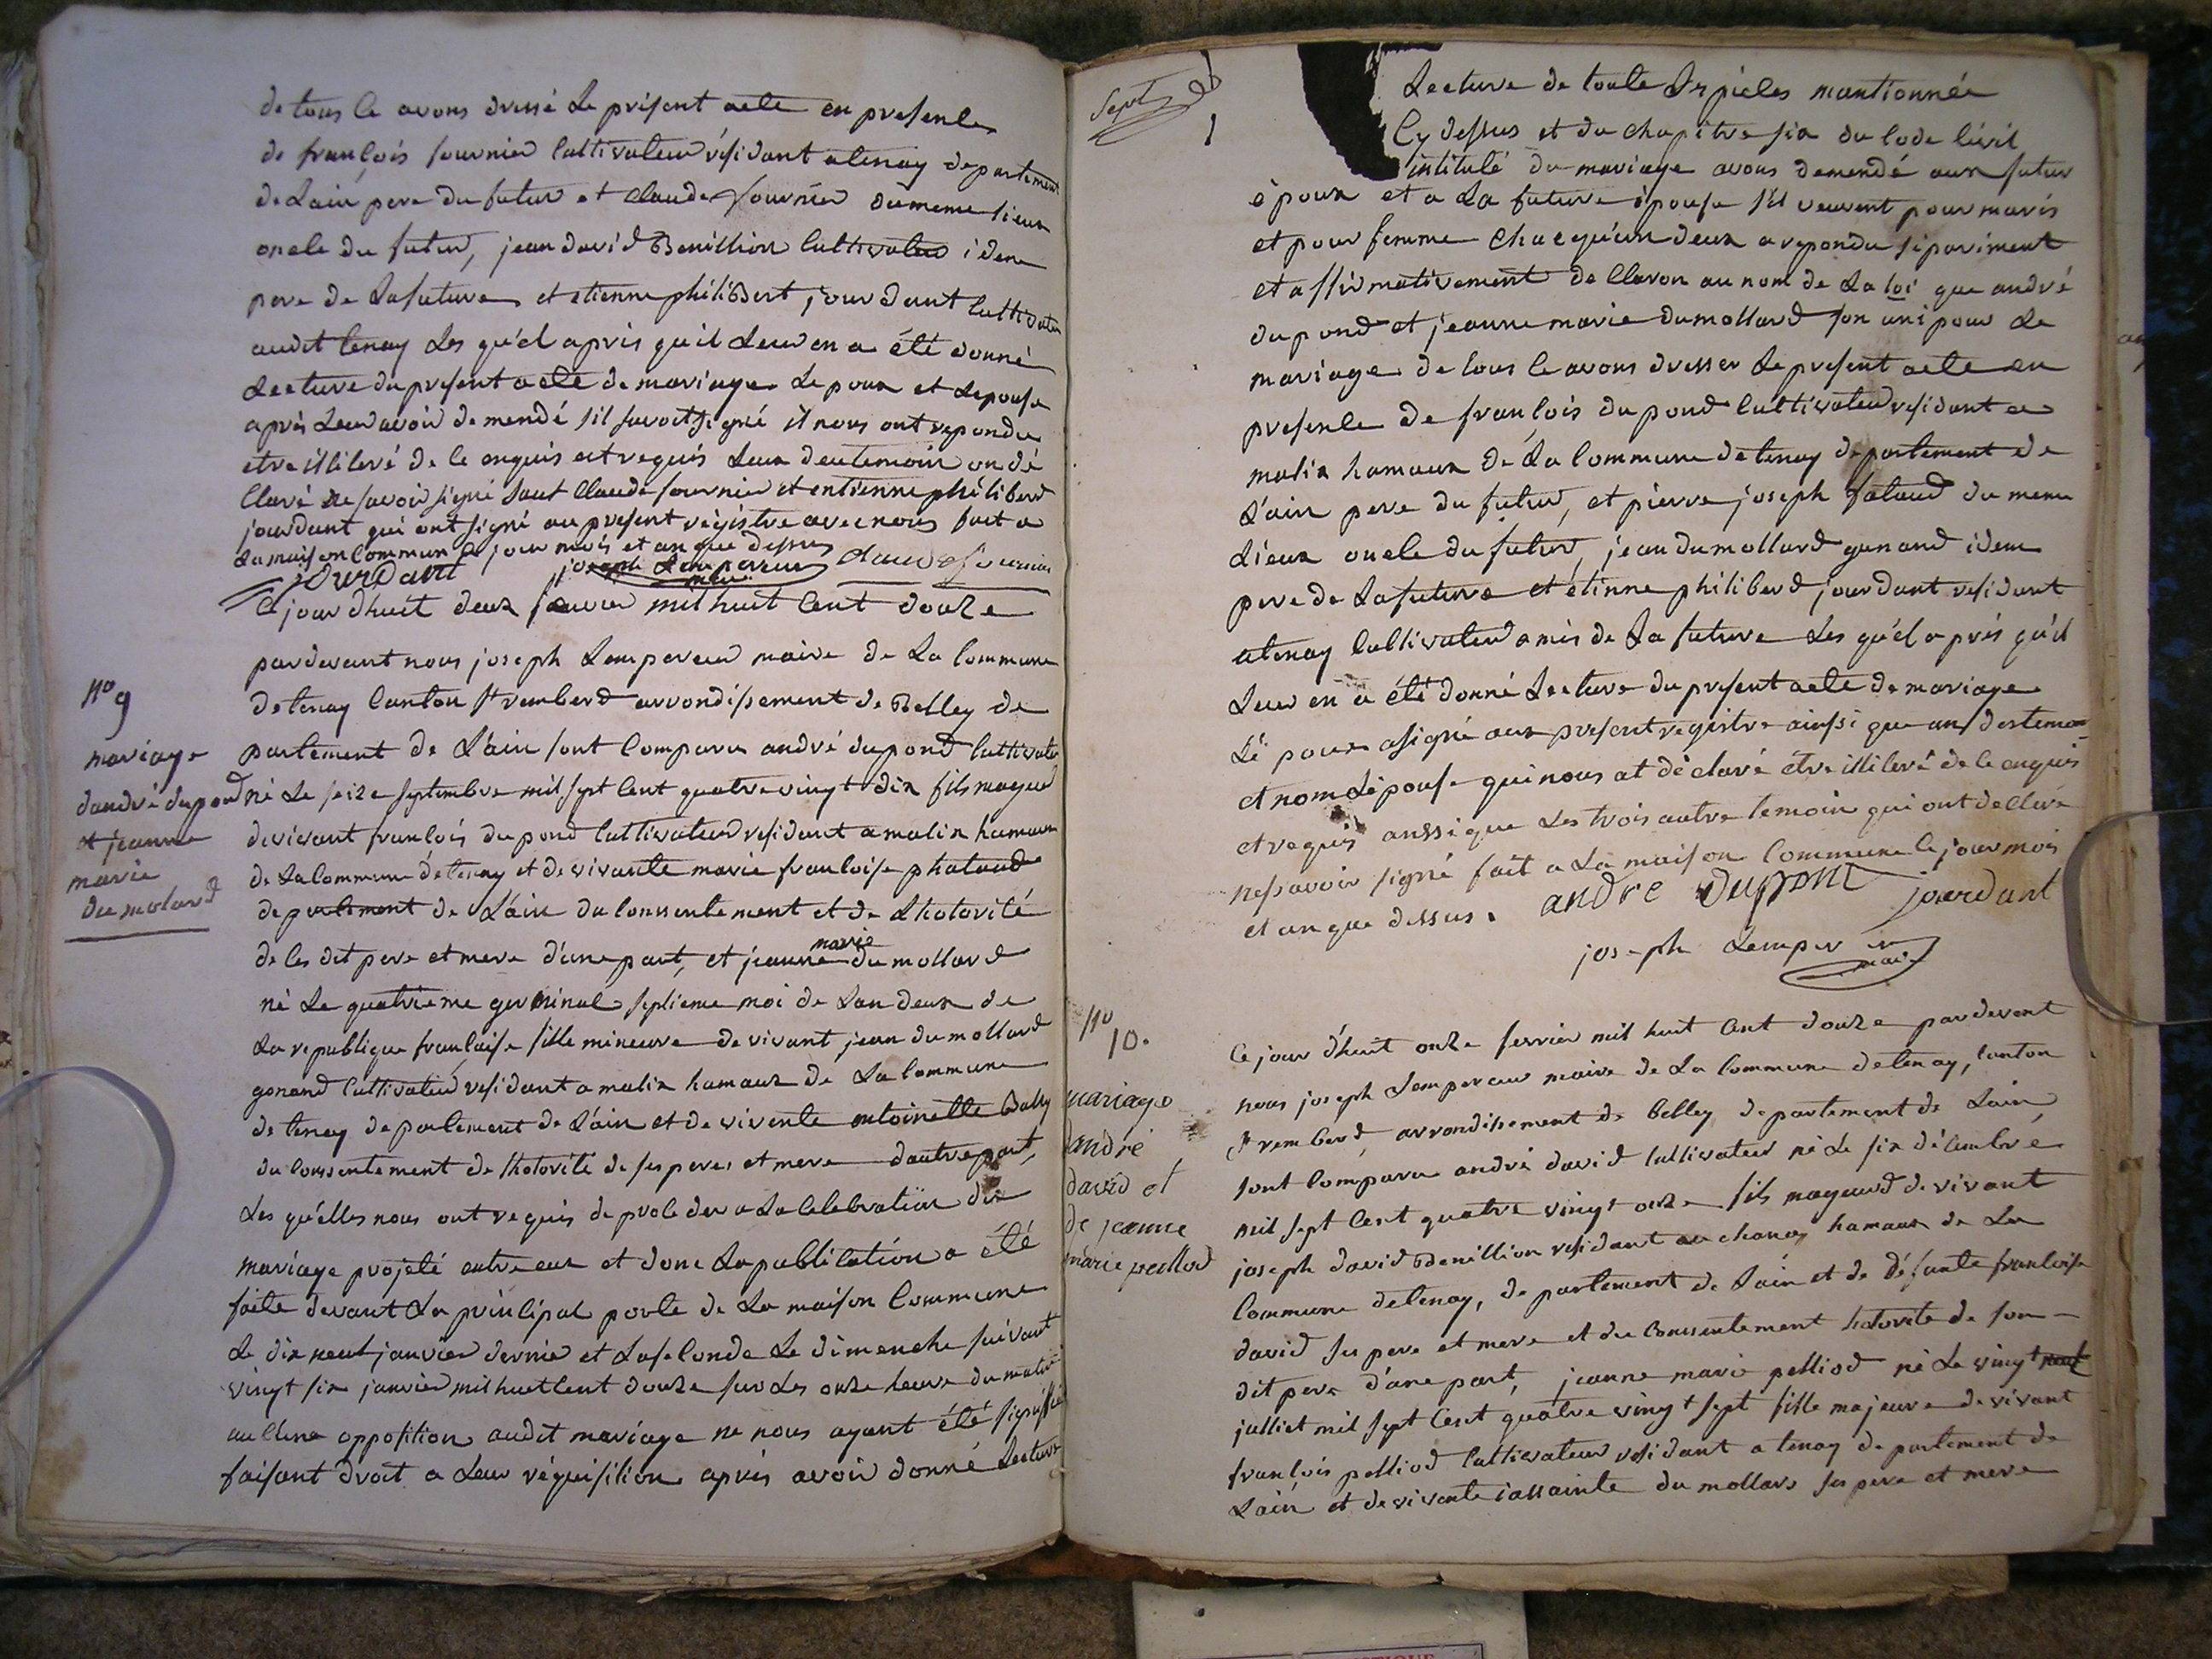 de tous ce avons dressé Le présent acte en presence
de françois fournier Cultivateur résidant a tenay departement
de Lain pere du futur et Claude fournier du meme Lieux
oncle du futur, jean david Benillion Cultivateur idem
pere de La future et etienne philibert jourdant Cultivateur
audit tenay Les quel apris qu'il Leur en a été donné
Lecture du present acte de mariage Le poux et Lepouse
après Leur avoir demendé s'il savoit signé il nous ont repondu
etre illiteré de ce enquis et requis Leux deu temoin on dé
Claré ne savoir signé sauf Claude fournier et entienne philiberd
jourdant qui ont signé au present régistre avec nous fait a
La maison Commune Ce jour mois et an que dessus
jOurDant joseph Lempereur maire claude fournier
Ce jour dhuit deux fevrier mil huit Cent douze
pardevant nous joseph Lempereur maire de La Commune
de tenay Canton St ramberd arrondissement de Belley de
partement de L'ain sont Comparu andré dupond Cultivateur
né Le seize septembre mil sept Cent quatre vingt dix fils mageur
de vivant françois dupond Cultivateur residant a malix hamaux
de La Commune de tenay et de vivante marie françoise phataud
departement de L'ain du Conssentement et de Lhotorité
de Ces dit pere et mere d'une part, et jeanne marie du mollard
né Le quatrieme germinal septieme moi de Lan deux de
La republique française fille mineure de vivant jean du mollard
gonand Cultivateur residant a malix hamaux de La Commune
de tenay departement de L'ain et de vivente antoinette Bally
du Conssentement de Lhotorité de ses peres et mere dautre part,
Les qu'elles nous ont requis de proceder a La Celebration du
mariage projeté entre eux et donc La publication a été
faite devant La principal porte de La maison Commune
Le dix neuf janvier dernier et La seconde Le dimenche suivant
vingt six janvier mil huit Cent douze sur Les onze heure du matin
auCune opposition audit mariage ne nous ayant été signifié
faisant droit a Leur réquisition apres avoir donné Lecture
no 9
mariage
dandré dupond
et jeanne
marie
du molard
Sept
Lecture de toute Les pieces mantionnée
Cy dessus et du chapitre six du Code Civil
intitulé du mariage avons demendé aux futur
époux et a La future épouse s'il veuvent pour maris
et pour femme Chacqu'un deux a repondu séparément
et affirmativement de Claron au nom de La loi que andré
dupond et jeanne marie dumollard son uni pour Le
mariage de tous Ce avons dresser Le present acte en
presence de françois dupond Cultivateur residant a
malix hamaux de La Commune de tenay departement de
L'ain pere du futur, et pierre joseph fataud du meme
Lieux oncle du futur, jean dumollard gunand idem
pere de La future et étinne philiberd jourdant residant
a tenay Cultivateur amis de La future Les qu'el aprés qu'il
Leur en a été donné Lecture du present acte de mariage
Lé poux a signé aux present registre ainssi que un des temoin
et nom Lépouse qui nous at déclaré étre illiteré de Ce enquis
et requis anssi que Les trois autre temoin qui ont decleré
ne savoir signé fait a La maison Commune Ce jour mois
et an que dessus. andre Dupont jourdant
joseph Lempereur
maire
no
10.
mariage
dandré
david et
de jeanne
marie pelliod
Ce jour d'huit onze fevrier mil huit Cent douze pardevent
nous joseph Lempereur maire de La Commune de tenay, Canton
St remberd, arrondissement de belley departement de Lain
sont Comparu andré david Cultivateur né Le six décembre
mil sept Cent quatre vingt onze fils mageurd de vivant
joseph david Benillion residant au chanay hamaux de La
Commune de tenay, departement de Lain et de défunte françoise
david ses pere et mere et du Conssentement hotorité de son
dit pere d'une part, jeanne marie pelliod né Le vingt neuf
julliet mil sept Cent quatre vingt sept fille majeure de vivant
françois pelliod Cultivateur residant a tenay departement de
Lain et de vivente iassainte du mollard ses pere et mere